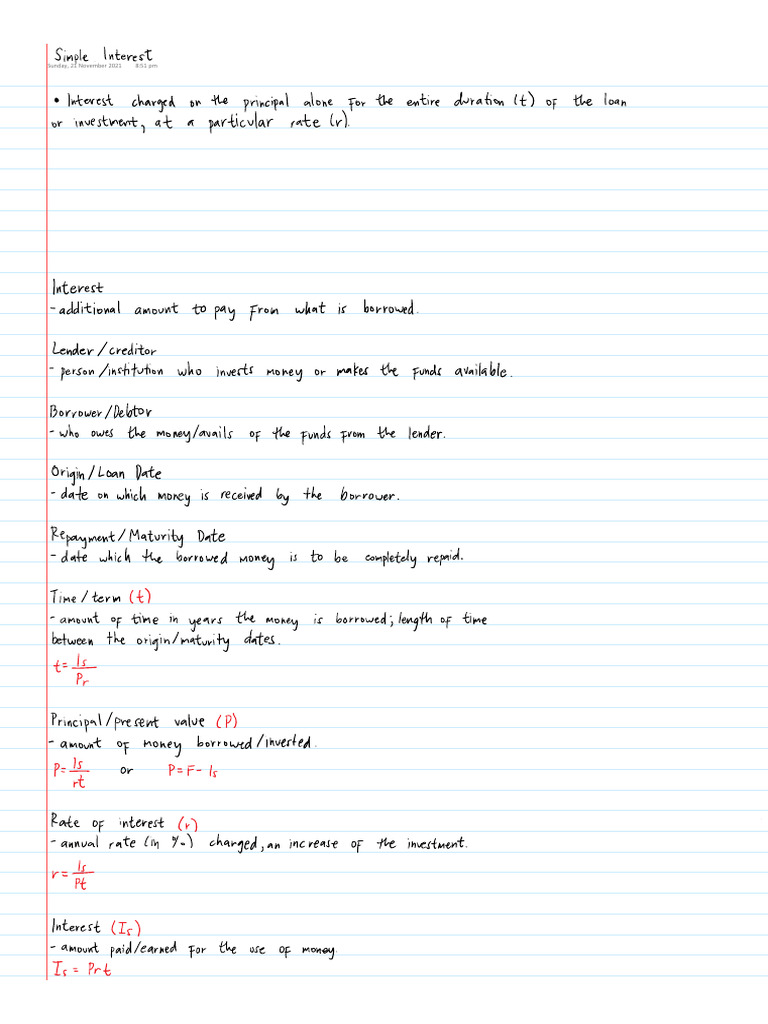 Simple Interest
Sunday, 21 November 2021 8:51 pm
• Interest charged on the principal alone for the entire duration (t) of the loan
or investment, at a particular rate (r).
Interest
- additional amount to pay from what is borrowed.
Lender/creditor
- person/institution who invests money or makes the funds available.
Borrower/Debtor
- who owes the money/avails of the funds from the lender.
Origin/Loan Date
- date on which money is received by the borrower.
Repayment/Maturity Date
- date which the borrowed money is to be completely repaid.
Time/term (t)
- amount of time in years the money is borrowed; length of time
between the origin/maturity dates.
t = Is/Pr
Principal/present value (P)
- amount of money borrowed/invested.
P = Is/rt or P = F - Is
Rate of interest (r)
- annual rate (in %) charged, an increase of the investment.
r = Is/Pt
Interest (Is)
- amount paid/earned for the use of money.
Is = Prt